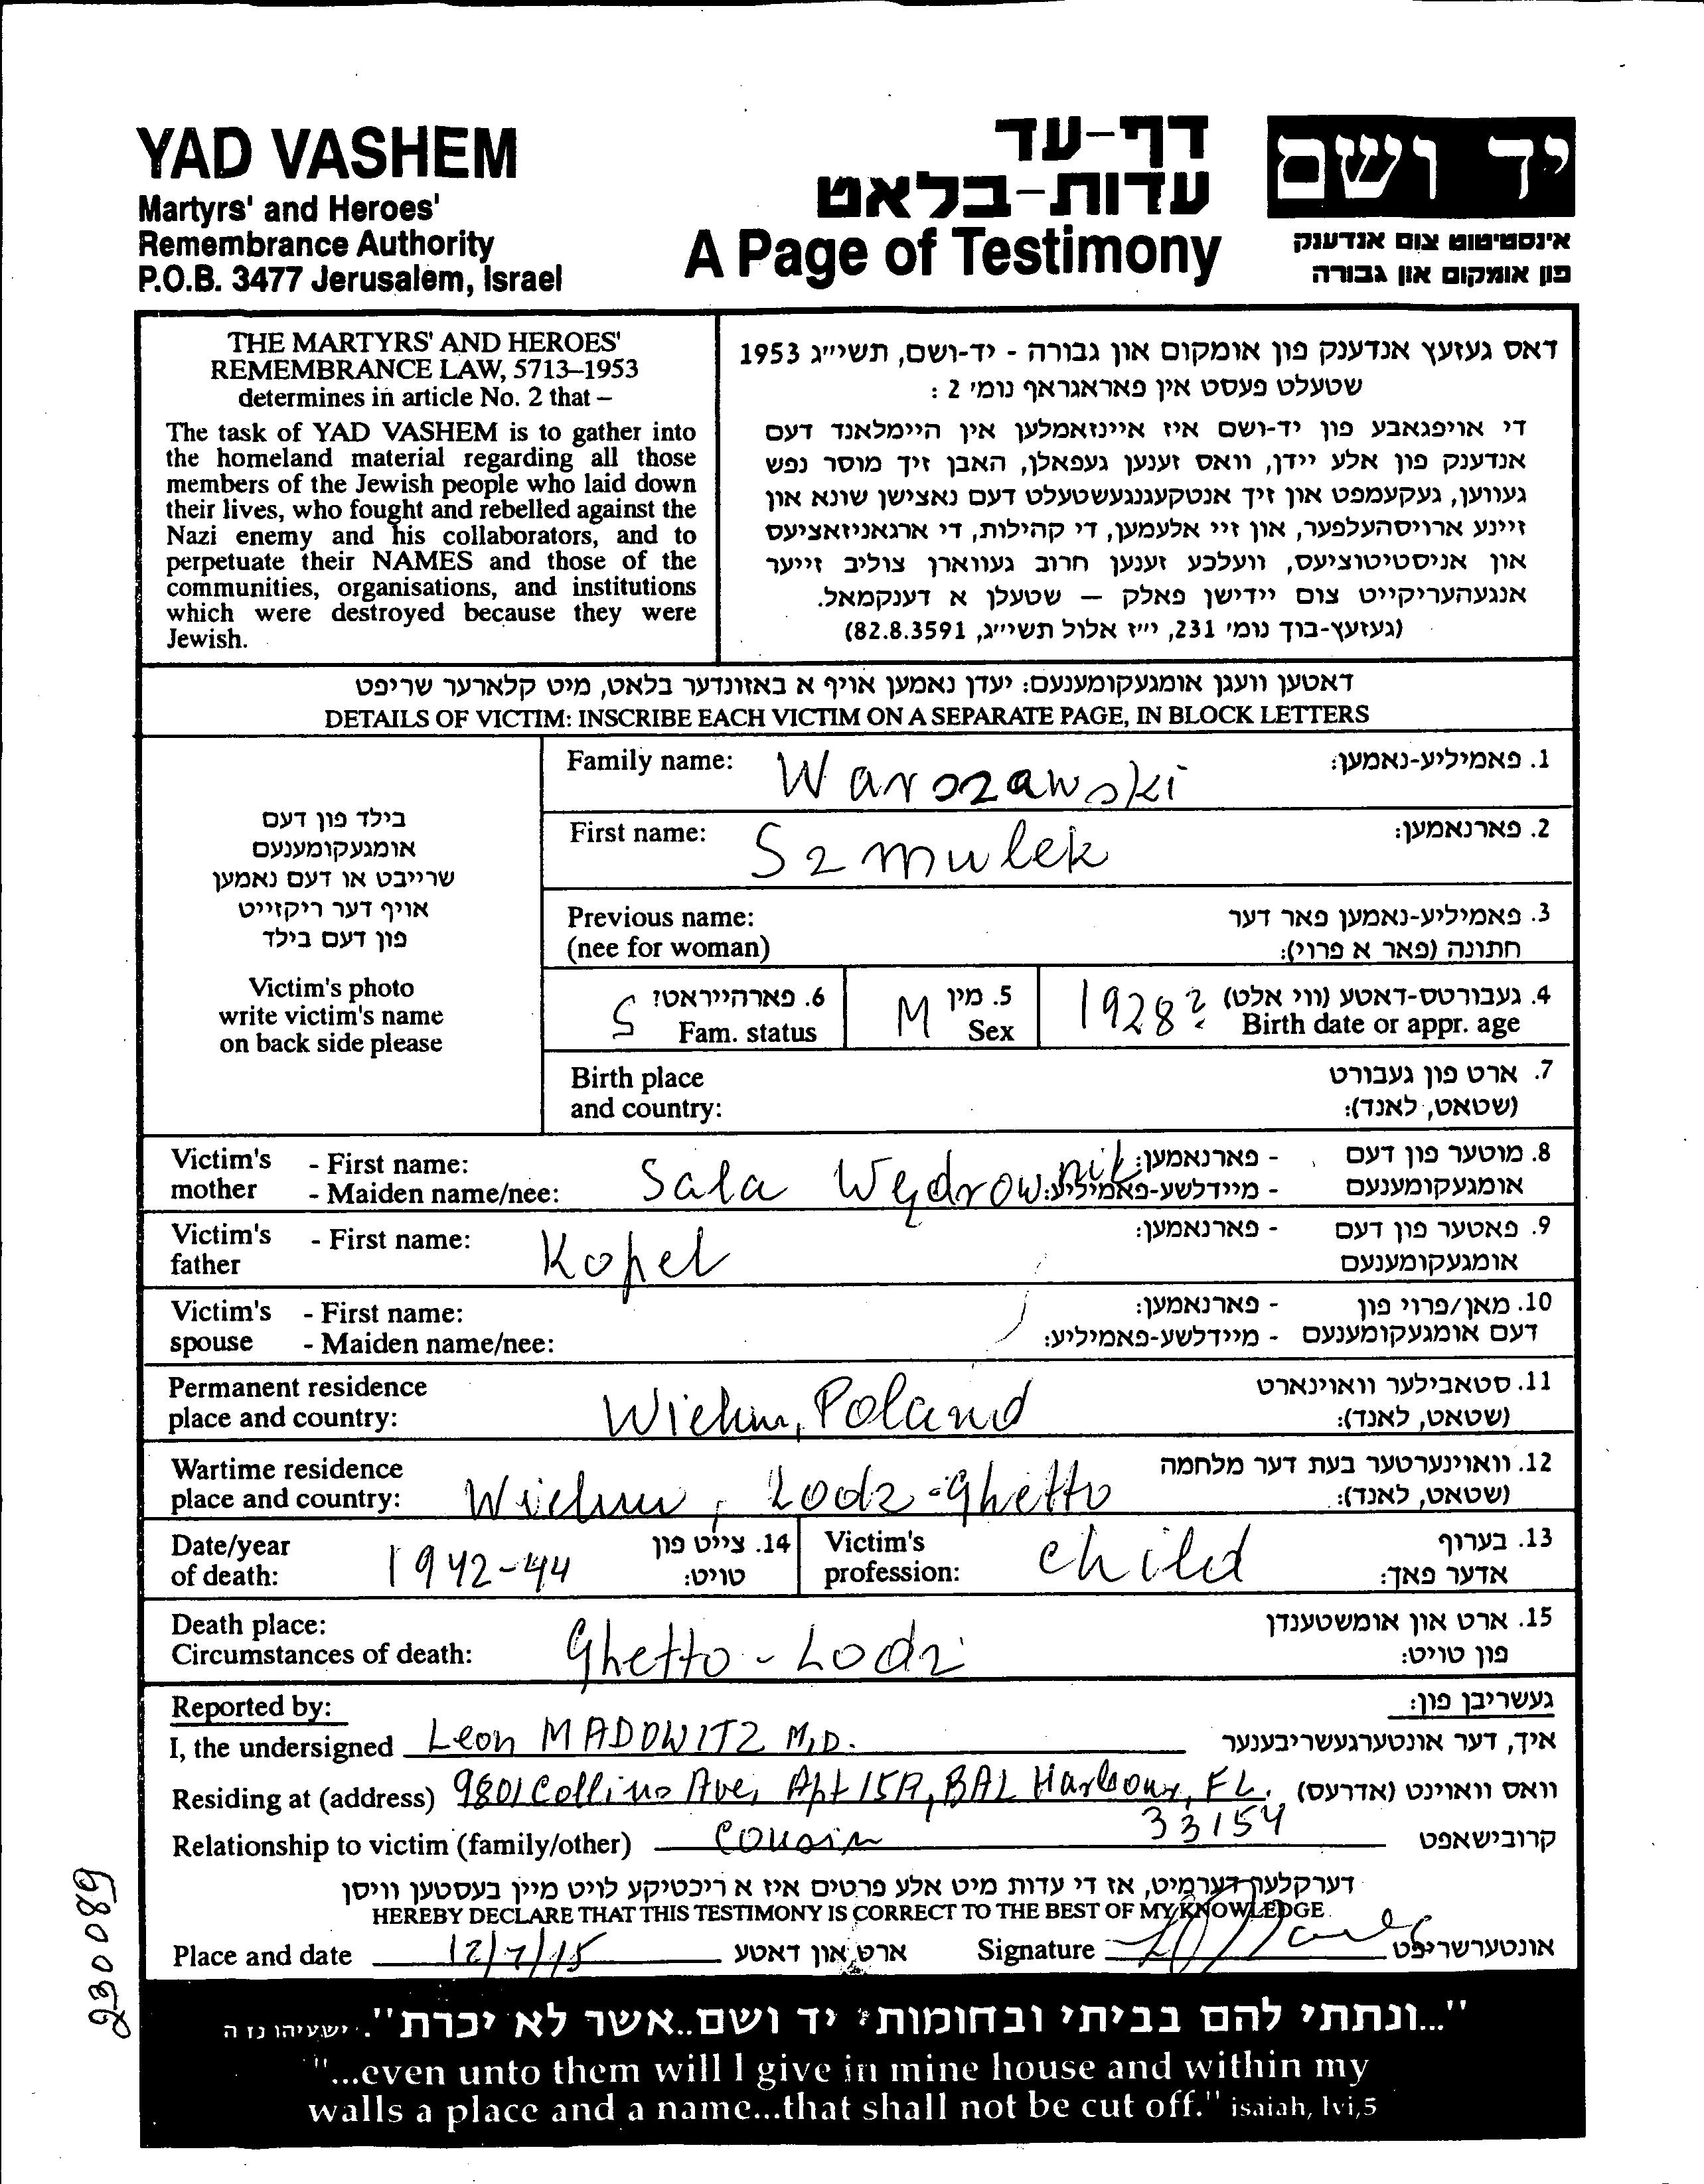 YAD VASHEM
Martyrs' and Heroes'
Remembrance Authority
P.O.B. 3477 Jerusalem, Israel
דף-עד
עדות-בלאט
A Page of Testimony
יד ושם
אינסטיטוט צום אנדענק
פון אומקום און גבורה
THE MARTYRS' AND HEROES'
REMEMBRANCE LAW, 5713–1953
determines in article No. 2 that –
The task of YAD VASHEM is to gather into
the homeland material regarding all those
members of the Jewish people who laid down
their lives, who fought and rebelled against the
Nazi enemy and his collaborators, and to
perpetuate their NAMES and those of the
communities, organisations, and institutions
which were destroyed because they were
Jewish.
דאס געזעץ אנדענק פון אומקום און גבורה - יד-ושם, תשי״ג 1953
שטעלט פעסט אין פאראגראף נומ׳ 2 :
די אויפגאבע פון יד-ושם איז איינזאמלען אין היימלאנד דעם
אנדענק פון אלע יידן, וואס זענען געפאלן, האבן זיך מוסר נפש
געווען, געקעמפט און זיך אנטקעגנגעשטעלט דעם נאצישן שונא און
זיינע ארויסהעלפער, און זיי אלעמען, די קהילות, די ארגאניזאציעס
און אניסטיטוציעס, וועלכע זענען חרוב געווארן צוליב זייער
אנגעהעריקייט צום יידישן פאלק — שטעלן א דענקמאל.
(געזעץ-בוך נומ׳ 231, י״ז אלול תשי״ג, 82.8.3591)
דאטען וועגן אומגעקומענעם: יעדן נאמען אויף א באזונדער בלאט, מיט קלארער שריפט
DETAILS OF VICTIM: INSCRIBE EACH VICTIM ON A SEPARATE PAGE, IN BLOCK LETTERS
בילד פון דעם
אומגעקומענעם
שרייבט או דעם נאמען
אויף דער ריקזייט
פון דעם בילד
Victim's photo
write victim's name
on back side please
Family name: Warszawski 1. פאמיליע-נאמען:
First name: Szmulek 2. פארנאמען:
Previous name: 3. פאמיליע-נאמען פאר דער
(nee for woman) חתונה (פאר א פרוי):
S 6. פארהייראט? M 5. מין 1928? 4. געבורטס-דאטע (ווי אלט)
Fam. status Sex Birth date or appr. age
Birth place 7. ארט פון געבורט
and country: (שטאט, לאנד):
Victim's - First name: - פארנאמען: 8. מוטער פון דעם
mother - Maiden name/nee: Sala Wędrownik - מיידלשע-פאמיליע: אומגעקומענעם
Victim's - First name: Kopel - פארנאמען: 9. פאטער פון דעם
father אומגעקומענעם
Victim's - First name: - פארנאמען: 10. מאן/פרוי פון
spouse - Maiden name/nee: - מיידלשע-פאמיליע: דעם אומגעקומענעם
Permanent residence 11. סטאבילער וואוינארט
place and country: Wielun, Poland (שטאט, לאנד):
Wartime residence 12. וואוינערטער בעת דער מלחמה
place and country: Wielun, Lodz-Ghetto (שטאט, לאנד):
Date/year 1942-44 14. צייט פון Victim's child 13. בערוף
of death: טויט: profession: אדער פאך:
Death place: 15. ארט און אומשטענדן
Circumstances of death: Ghetto - Lodz פון טויט:
Reported by: געשריבן פון:
I, the undersigned Leon MADOWITZ M.D. איך, דער אונטערגעשריבענער
Residing at (address) 9801 Collins Ave, Apt 15A, BAL Harbour, FL. וואס וואוינט (אדרעס)
33154
Relationship to victim (family/other) cousin קרובישאפט
דערקלער דערמיט, אז די עדות מיט אלע פרטים איז א ריכטיקע לויט מיין בעסטען וויסן
HEREBY DECLARE THAT THIS TESTIMONY IS CORRECT TO THE BEST OF MY KNOWLEDGE.
Place and date 12/7/15 ארט און דאטע Signature אונטערשריפט
230089
"...ונתתי להם בביתי ובחומותי יד ושם..אשר לא יכרת". ישעיהו נז ה
"...even unto them will I give in mine house and within my
walls a place and a name...that shall not be cut off." isaiah, lvi,5